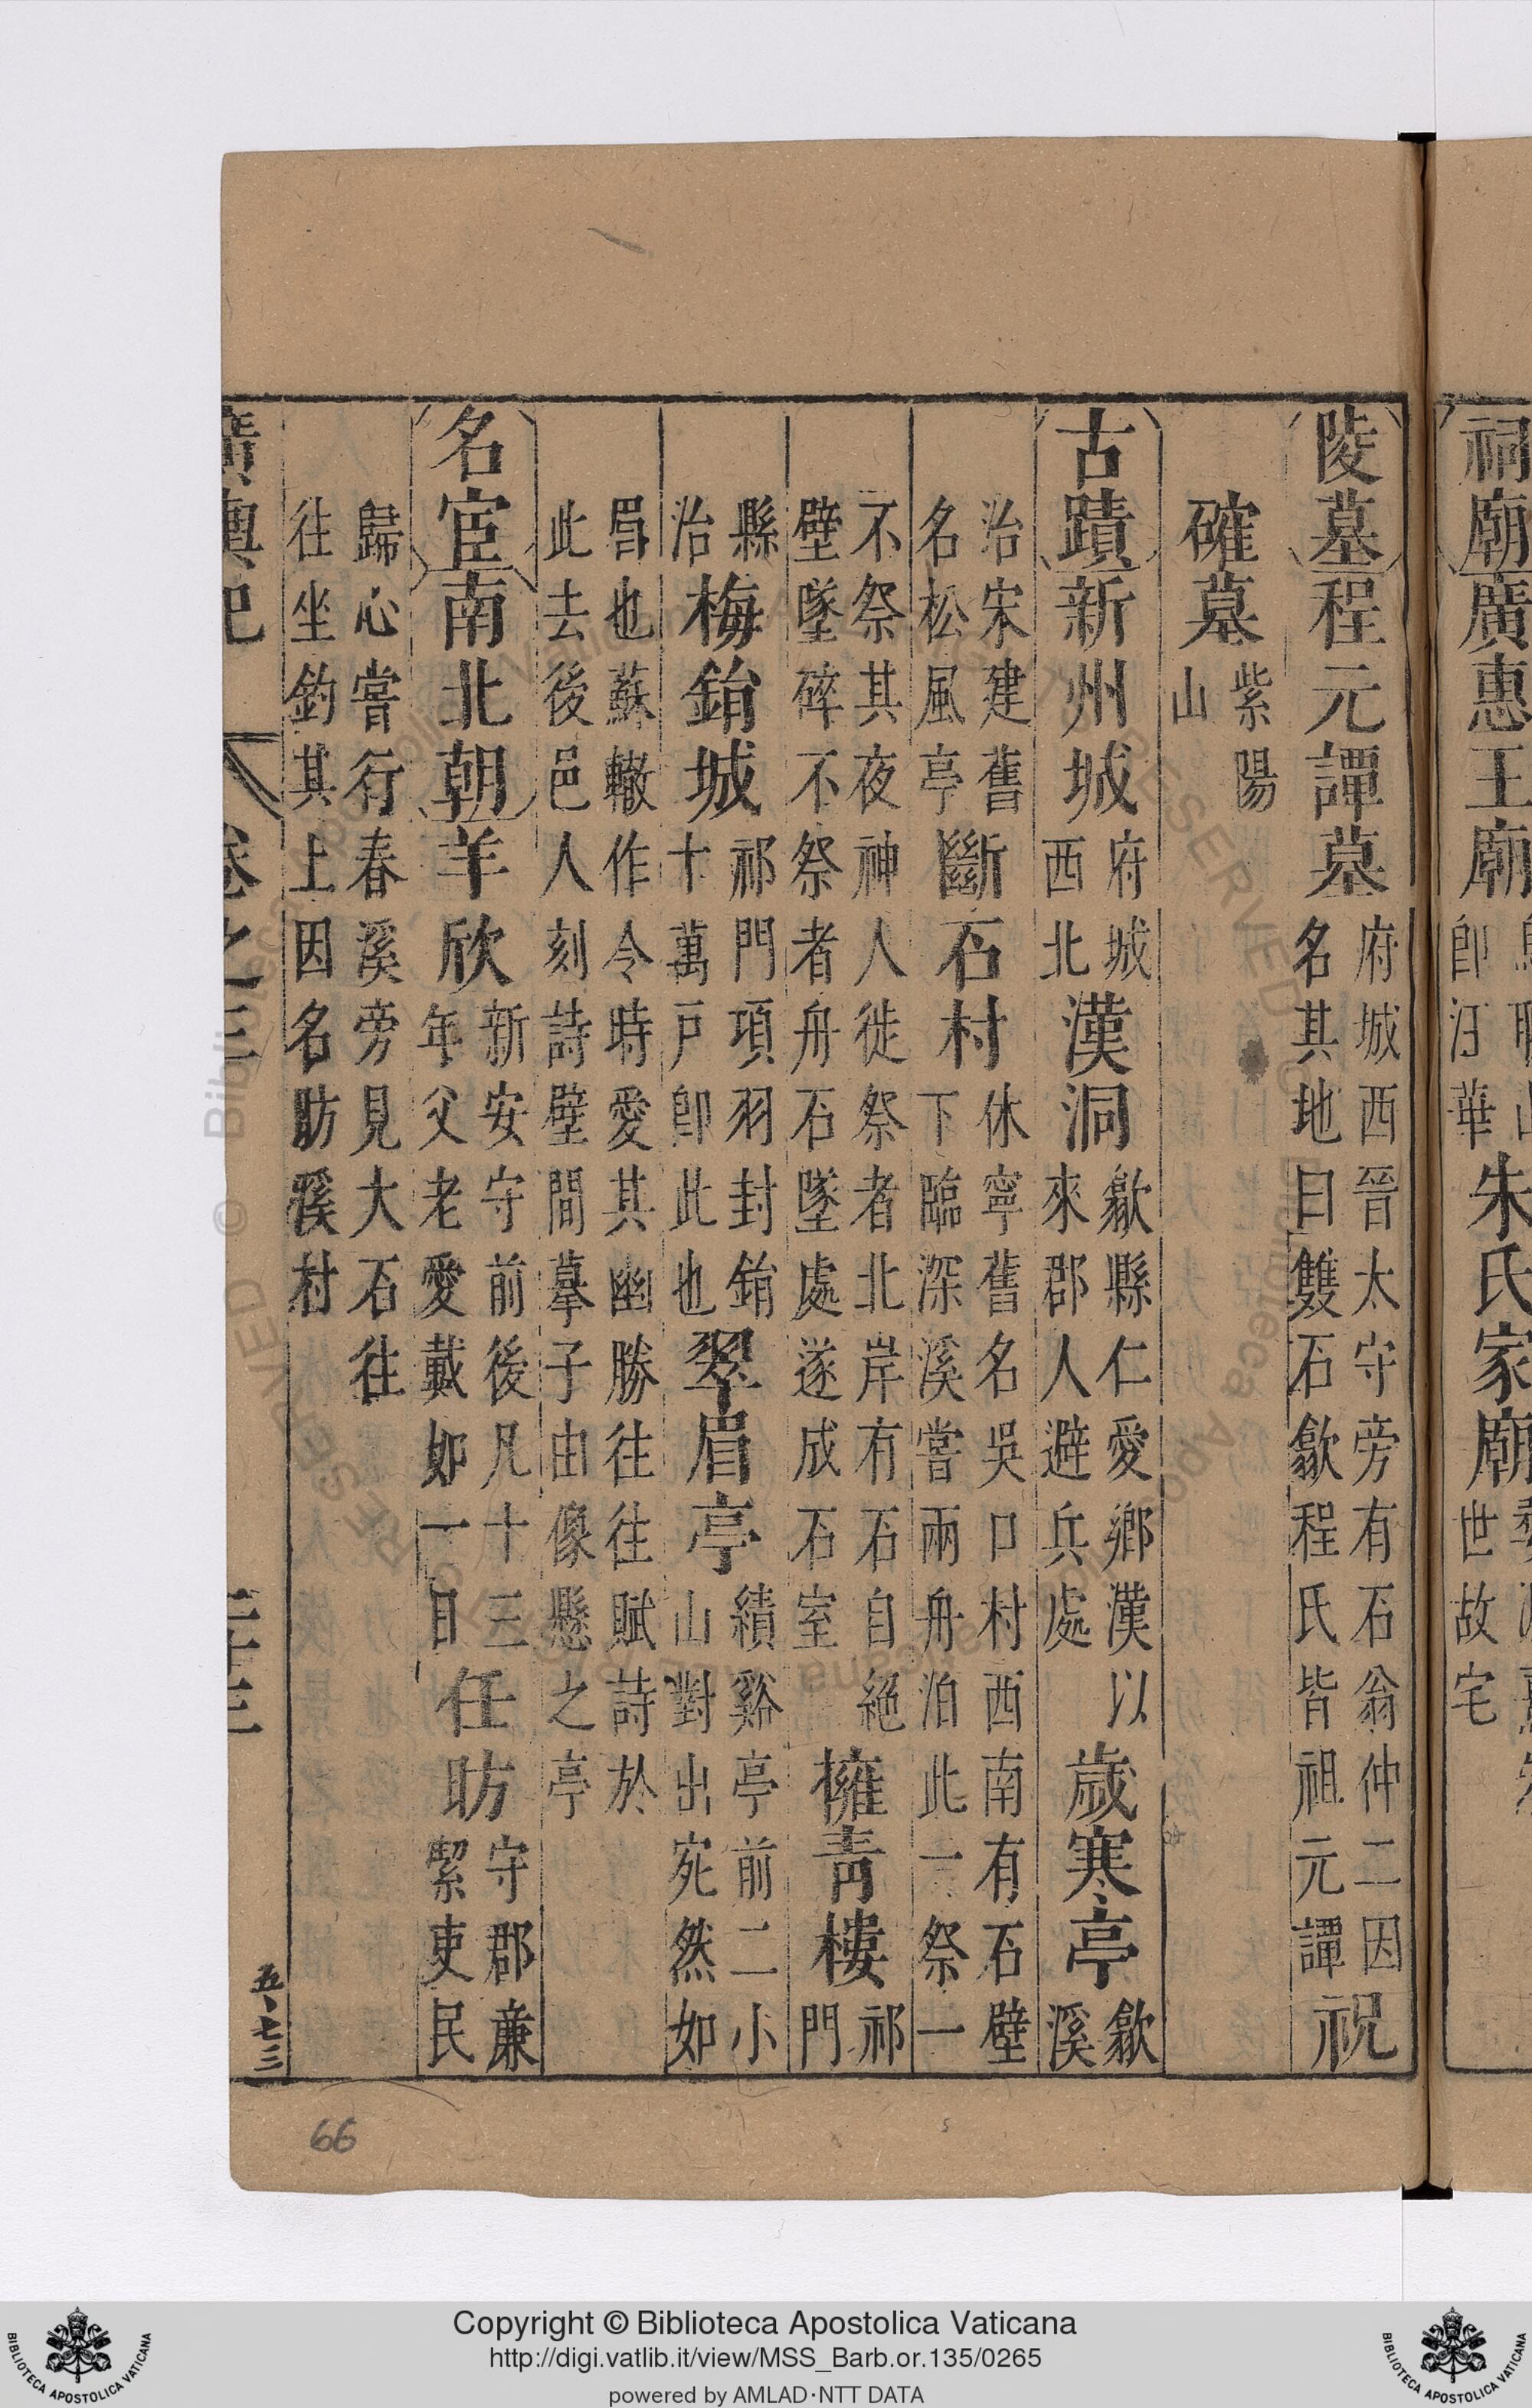 祠廟廣惠王廟
卽汪華
朱氏家廟
世故宅
陵墓程元譚墓府城西晉太守旁有石翁仲二因名其地曰雙石歙程氏皆祖元譚祝
確墓紫陽山
古蹟新州城府城西北漢洞歙縣仁愛鄉漢以來郡人避兵處歲寒亭歙溪
治宋建舊名松風亭斷石村休寧舊名吳口村西南有石壁下臨深溪嘗兩舟泊此一祭一
不祭其夜神人徙祭者北岸有石自絕壁墜碎不祭者舟石墜處遂成石室擁青樓祁門
縣治梅鋗城祁門項羽封鋗十萬戶卽此也翠眉亭績谿亭前二小山對出宛然如
眉也蘇轍作令時愛其幽勝往往賦詩於此去後邑人刻詩壁間摹子由像懸之亭
名宦南北朝羊欣新安守前後凡十三年父老愛戴如一日任昉守郡廉潔吏民
歸心嘗行春溪旁見大石往往坐釣其上因名昉溪村
廣輿記 卷之三 二十三
五、七三
66
Copyright © Biblioteca Apostolica Vaticana
http://digi.vatlib.it/view/MSS_Barb.or.135/0265
powered by AMLAD·NTT DATA
BIBLIOTECA APOSTOLICA VATICANA
BIBLIOTECA APOSTOLICA VATICANA